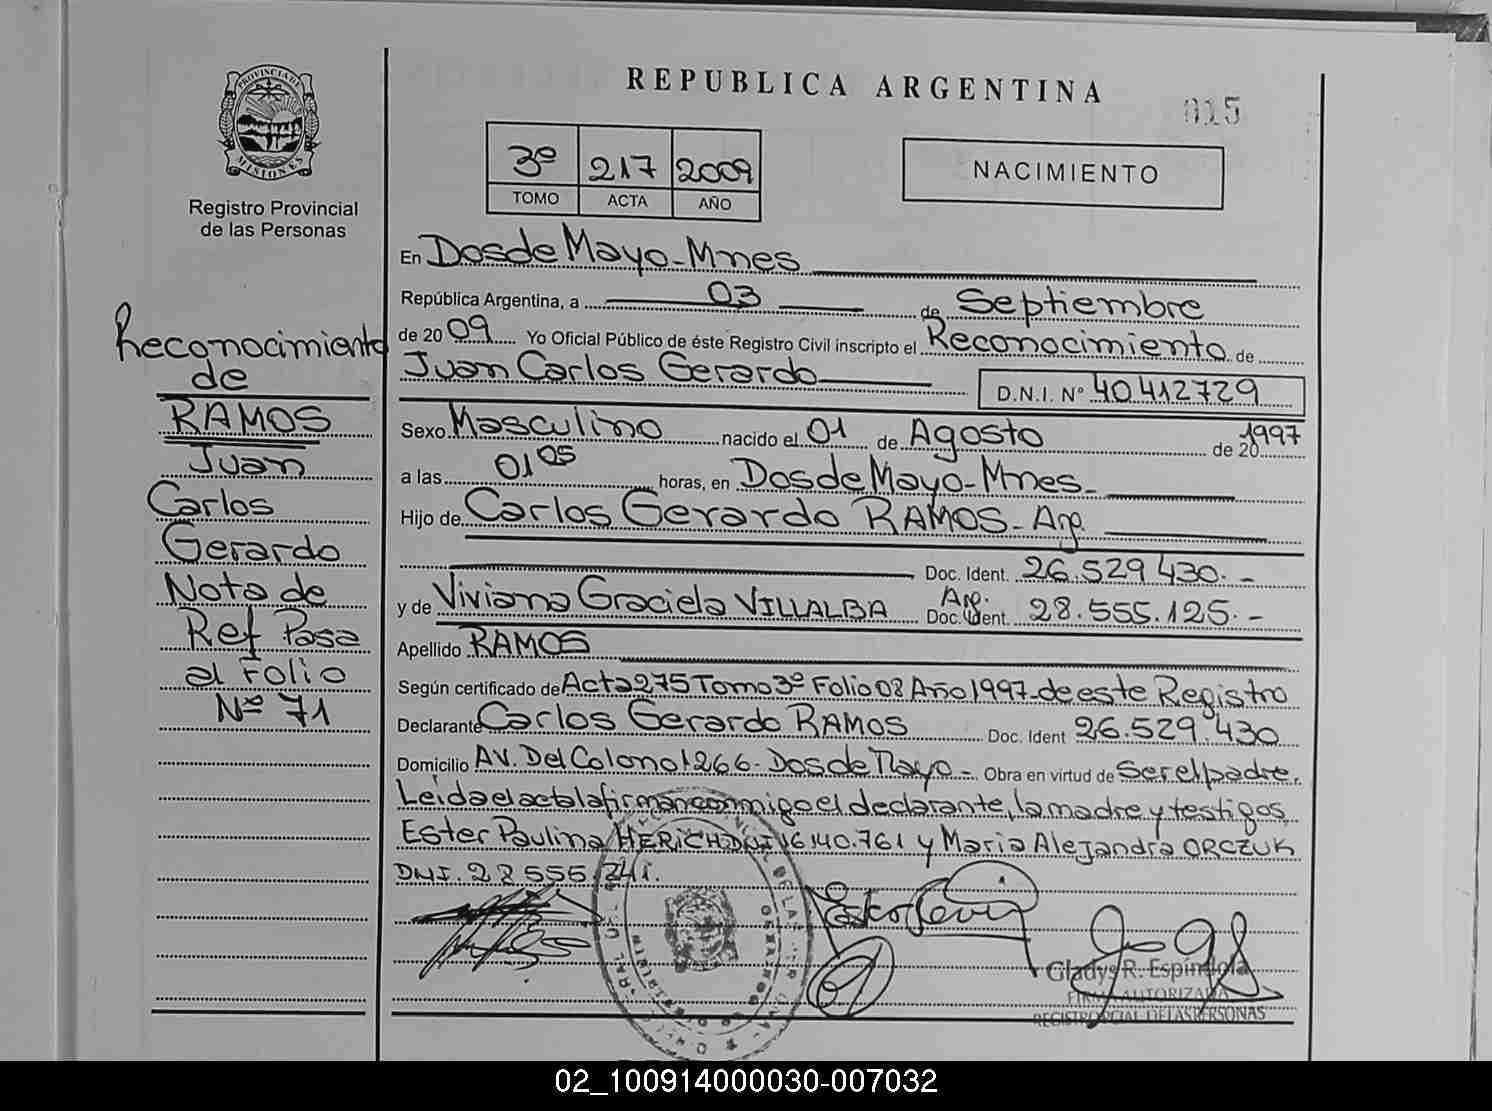 REPUBLICA ARGENTINA
015
PROVINCIA DE MISIONES
Registro Provincial
de las Personas
3º 217 2009
TOMO ACTA AÑO
NACIMIENTO
Reconocimiento
de
RAMOS
Juan
Carlos
Gerardo
Nota de
Ref Pasa
al Folio
Nº 71
En Dos de Mayo - Mnes
República Argentina, a 03 de Septiembre
de 20 09 Yo Oficial Público de éste Registro Civil inscripto el Reconocimiento de
Juan Carlos Gerardo D.N.I. Nº 40412729
Sexo Masculino nacido el 01 de Agosto de 20 1997
a las 01 05 horas, en Dos de Mayo - Mnes -
Hijo de Carlos Gerardo RAMOS - Arg.
Doc. Ident. 26.529 430. -
y de Viviana Graciela VILLALBA Arg. Doc. Ident. 28.555.125. -
Apellido RAMOS
Según certificado de Acta 275 Tomo 3º Folio 08 Año 1997 - de este Registro
Declarante Carlos Gerardo RAMOS Doc. Ident 26.529.430
Domicilio AV. Del Colono 1266 - Dos de Mayo - Obra en virtud de Ser el padre.
Leida el acta la firman conmigo el declarante, la madre y testigos
Ester Paulina HERICH DNI 16140.761 y Maria Alejandra ORCZUK
DNI. 28 555 241.
Gladys R. Espíndola
FIRMA AUTORIZADA
REGISTRO PCIAL DE LAS PERSONAS
02_100914000030-007032